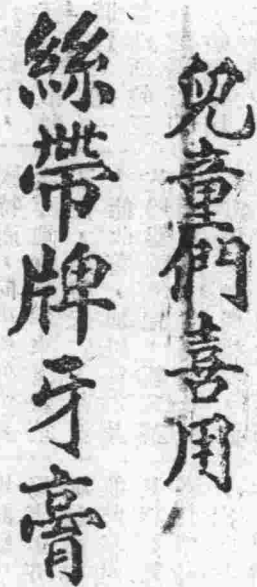 兒童們喜用，
絲帶牌牙膏